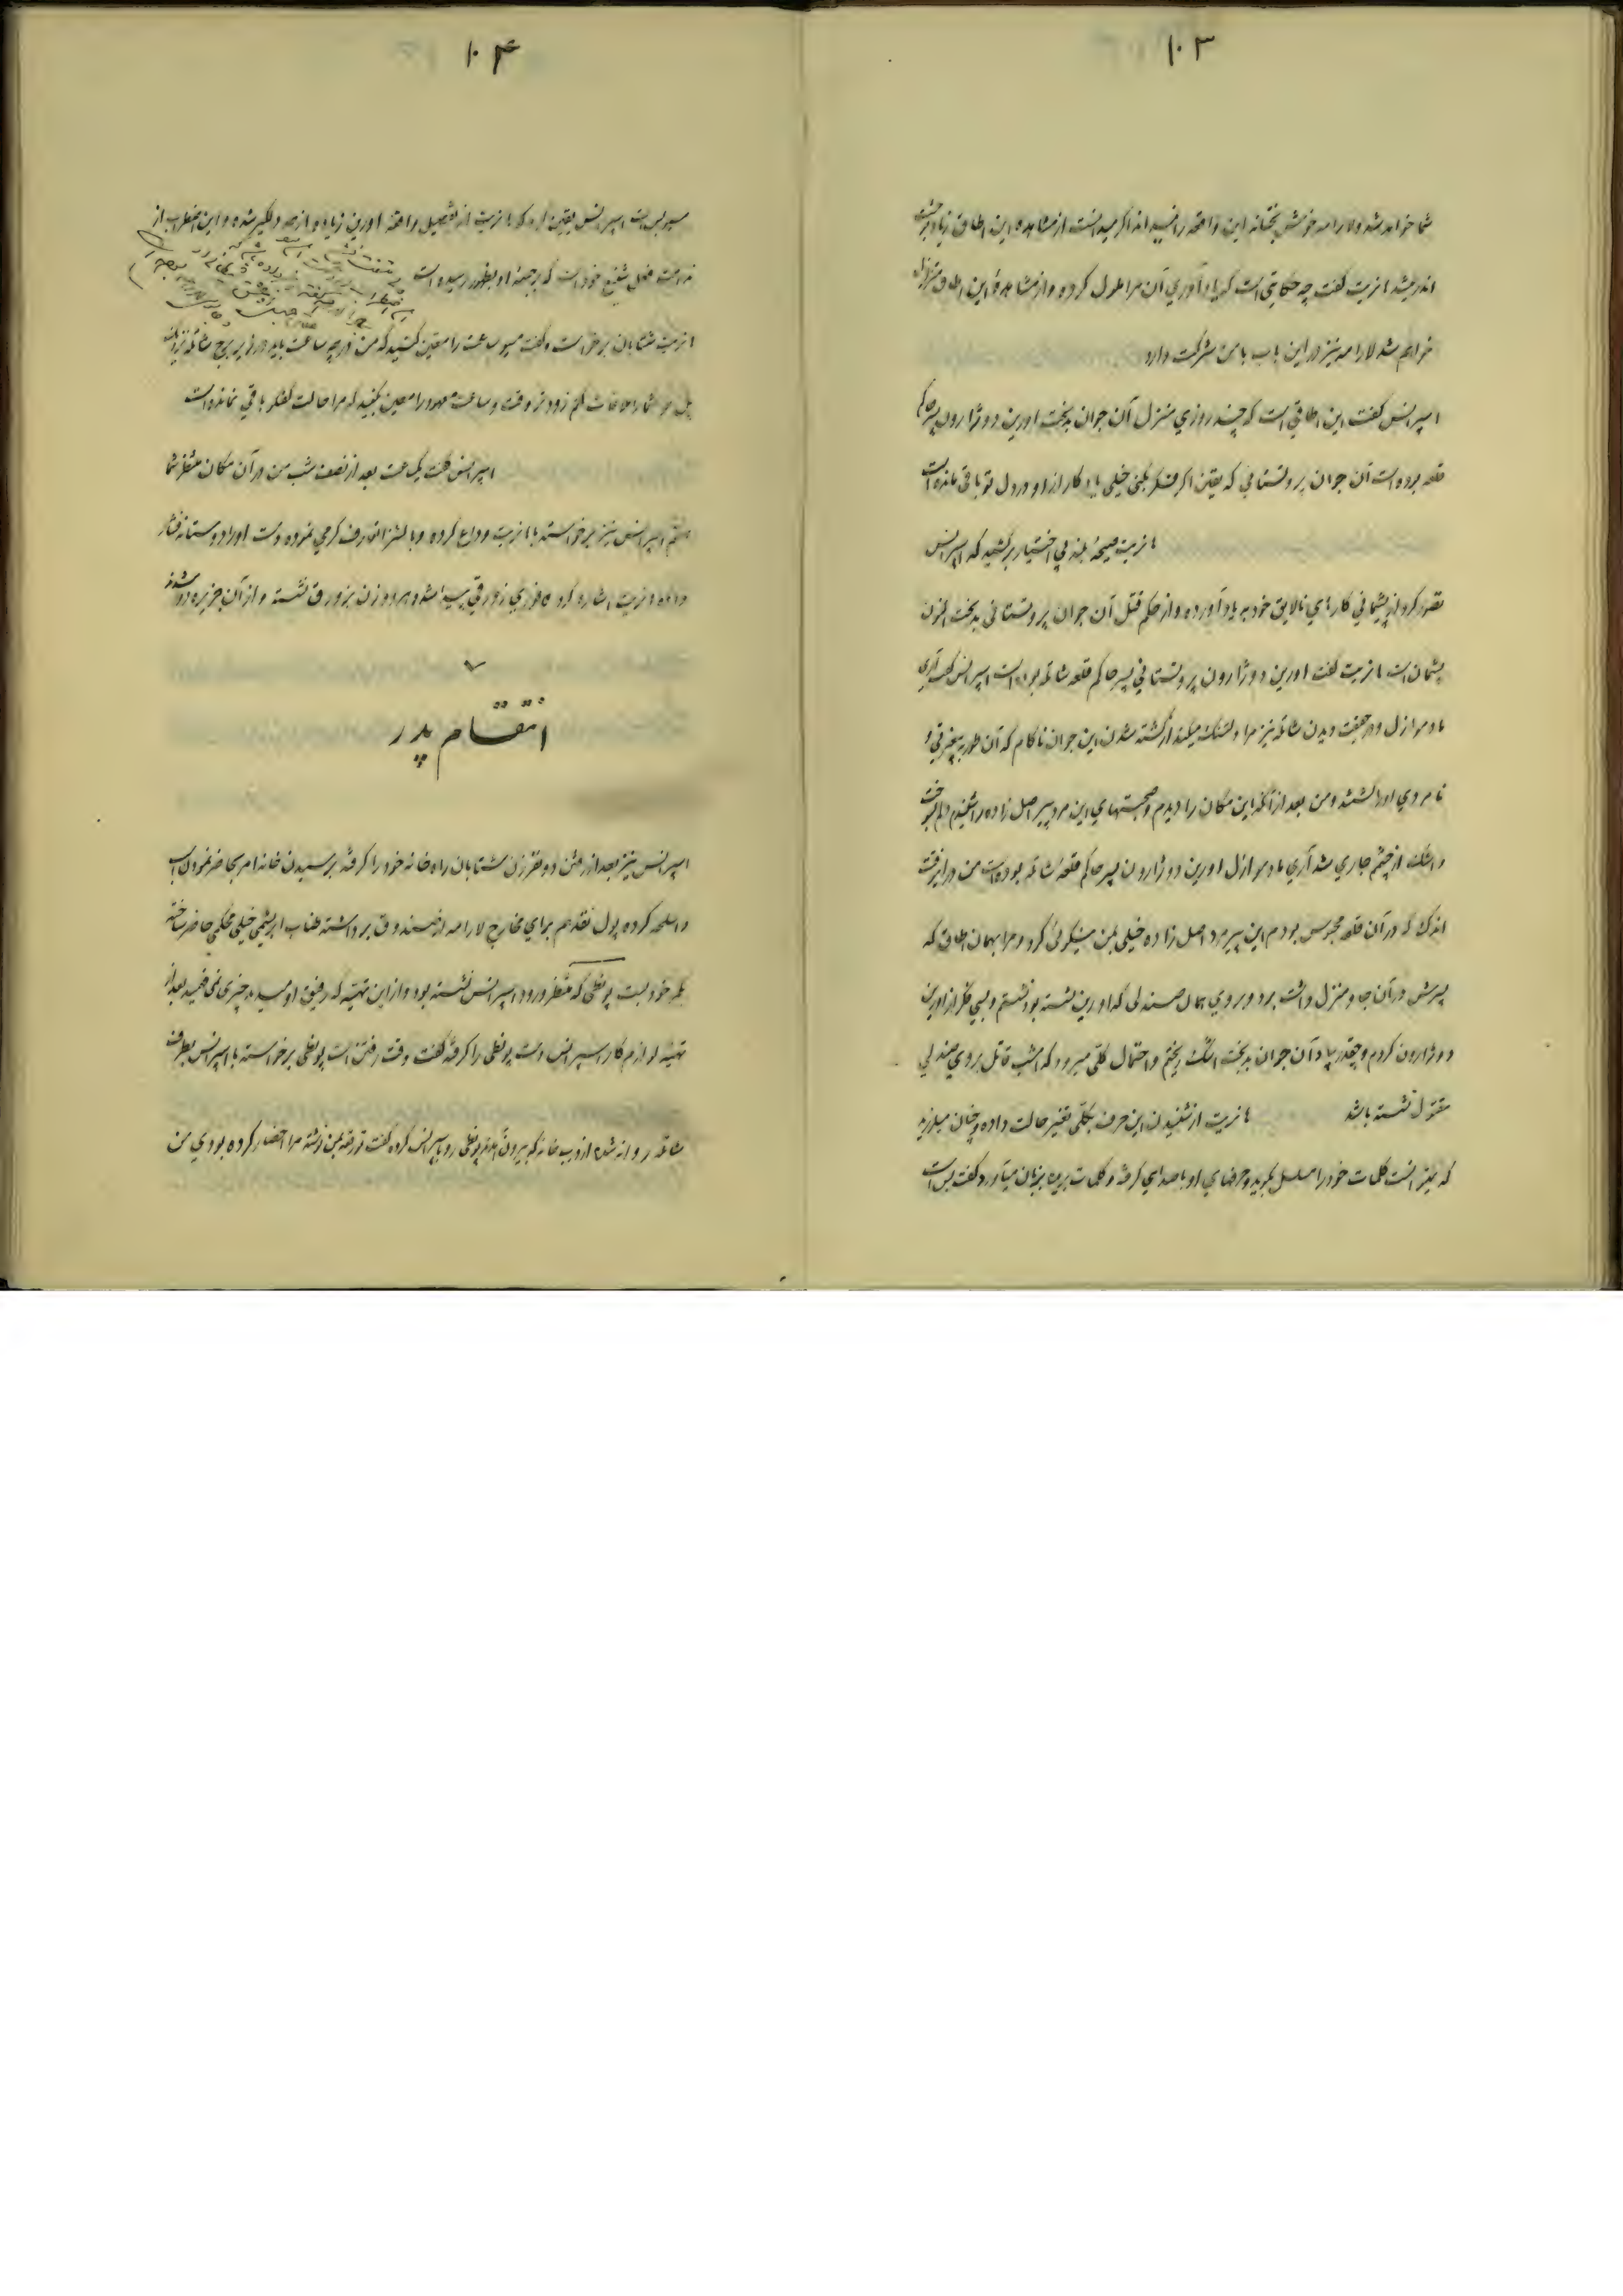 ۱۰۳
شما خواهد شد ولا رامه خوشبختانه این واقعه را نفهمیده اند اگر میدانست از مشاهده این اطاق زیاد بوحشت
اندر میشد مانریت گفت چه حکایتی است که یاد آوری آن مرا ملول کرده و از مشاهده این اطاق متزلزل
خواهم شد لارامه نیز در این باب با من شرکت دارد
اسپرانس گفت این اطاقی است که چند روزی منزل آن جوان بدبخت اورین دوژارون پسر حاکم
قلعه بوده است آن جوان پروتستانی که یقین اگر فکر بکنی خیلی یادگار از او در دل تو باقی مانده است
مانریت صیحه بلند بی اختیار برکشید که اسپرانس
تصور کرد از پشیمانی کارهای نالایق خود بیاد آورده و از حکم قتل آن جوان پروتستانی بدبخت اکنون
پشیمان است مانریت گفت اورین دوژارون پروتستانی پسر حاکم قلعه شانته بوده است اسپرانس گفت آری
مادموازل و در حقیقت دیدن شانته نیز مرا دلتنگ میکند از کشته شدن این جوان ناکام که آن طور به بیغیرتی و
نامردی او را کشتند و من بعد از آنکه این مکان را دیدم و صحبتهای این مرد پیر اصل زاده را شنیدم دلم سوخت
و اشک از چشمم جاری شد آری مادموازل اورین دوژارون پسر حاکم قلعه شانته بوده است من در این وقت
اندک که در آن قلعه محبوس بودم این پیرمرد اصل زاده خیلی بمن نیکوئی کرد و مرا بهمان اطاق که
پسرش در آن جا منزل داشت برد و بر روی همان صندلی که اورین نشسته بود نشستم و بسی فکر از اورین
دوژارون کردم و چقدر بیاد آن جوان بدبخت اشک ریختم و احتمال کلی میرود که امشب قاتل بروی صندلی
مقتول نشسته باشد مانریت از شنیدن این حرف بکلی تغییر حالت داده و چنان میلرزید
که نمیتوانست کلمات خود را مسلسل بگوید و حرفهای او با صدای گرفته و کلمات بریده بزبان میآورد گفت بس است
۱۰۴
مسیو بس است اسپرانس یقین کرد که مانریت از تفصیل واقعه اورین زیاده از حد دلگیر شده و این اضطراب از
ندامت فعل شنیع خود است که بر جبهه او بظهور رسیده است
مانریت شتابان برخواست و گفت مسیو ساعت را معین کنید که من در چه ساعت باید در زیر برج شانته نزدیک
پل شما را ملاقات کنم زودتر وقت و ساعت معهود را معین بکنید که مرا حالت تفکر باقی نمانده است
اسپرانس گفت یکساعت بعد از نصف شب من در آن مکان منتظر شما
هستم اسپرانس نیز برخواسته با مانریت وداع کرده و با لشرا تعارف گرمی نموده دست او را دوستانه فشار
داده مانریت اشاره کرد فوری زورقی پیدا شد و هر دو زن بزورق نشسته و از آن جزیره دور شدند
۷
انتقام پدر
اسپرانس نیز بعد از رفتن دو نفر زن شتابان راه خانه خود را گرفته برسیدن خانه امر بحاضر نمودن اسب
و اسلحه کرده پول نقد هم برای مخارج لارامه از صندوق برداشته طناب ابریشمی خیلی محکمی حاضر ساخته
بکمر خود بست پونطی که منتظر ورود اسپرانس نشسته بود و از این تهیه که رفیق او میدید چیزی نمی فهمید بعد از
تهیه لوازم کار اسپرانس دست پونطی را گرفته گفت وقت رفتن است پونطی برخواسته با اسپرانس بطرف
شانته روانه شده از درب خانه که بیرون آمدند پونطی رو باسپرانس کرده گفت تو رقعه بمن نوشته مرا احضار کرده بودی من